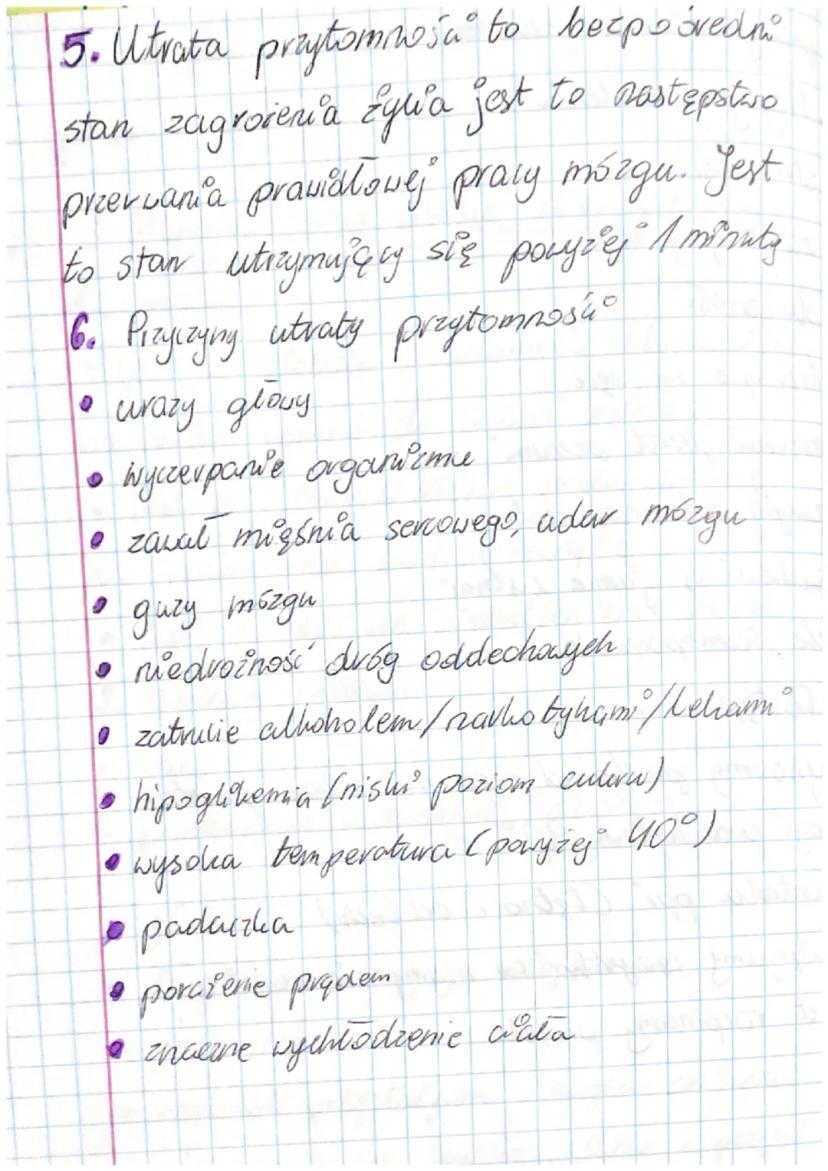 5. Utrata przytomności to bezpośredni
stan zagrożenia życia jest to następstwo
przerwania prawidłowej pracy mózgu. Jest
to stan utrzymujący się powyżej 1 minuty
6. Przyczyny utraty przytomności
• urazy głowy
• wyczerpanie organizmu
• zawał mięśnia sercowego, udar mózgu
• guzy mózgu
• niedrożność dróg oddechowych
• zatrucie alkoholem/narkotykami/lekami
• hipoglikemia (niski poziom cukru)
• wysoka temperatura (powyżej 40°)
• padaczka
• porażenie prądem
• znaczne wychłodzenie ciała